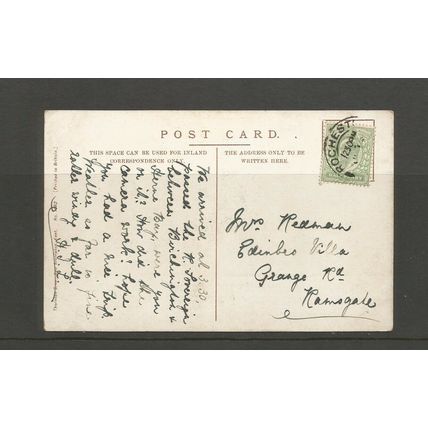 POST CARD.
THIS SPACE CAN BE USED FOR INLAND
CORRESPONDENCE ONLY.
THE ADDRESS ONLY TO BE
WRITTEN HERE.
ROCHEST
We arrived at 3.30,
passed the R. Sovereign
between Birchington &
Herne Bay, were you
on it? How did the
camera work? Hope
you had a nice trip.
Weather so far is fine,
rather windy & dull.
Mrs Redman
Edinbro Villa
Grange Rd
Ramsgate
(Printed in Britain.)